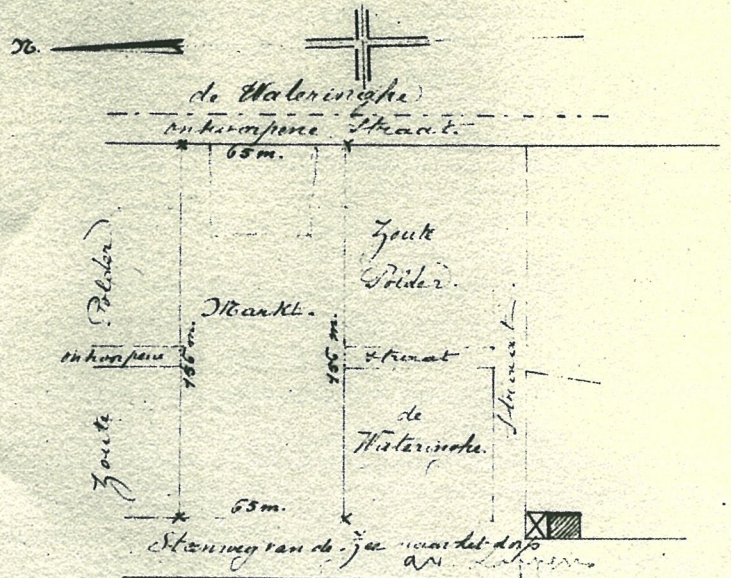 N.
de Wateringhe
ontworpene Straat.
65 m.
Zoute
Polder.
Zoute Polder
Markt.
ontworpene
156 m.
156 m.
straat
Straat.
de
Wateringhe.
65 m.
Steenweg van de Zee naar het dorp